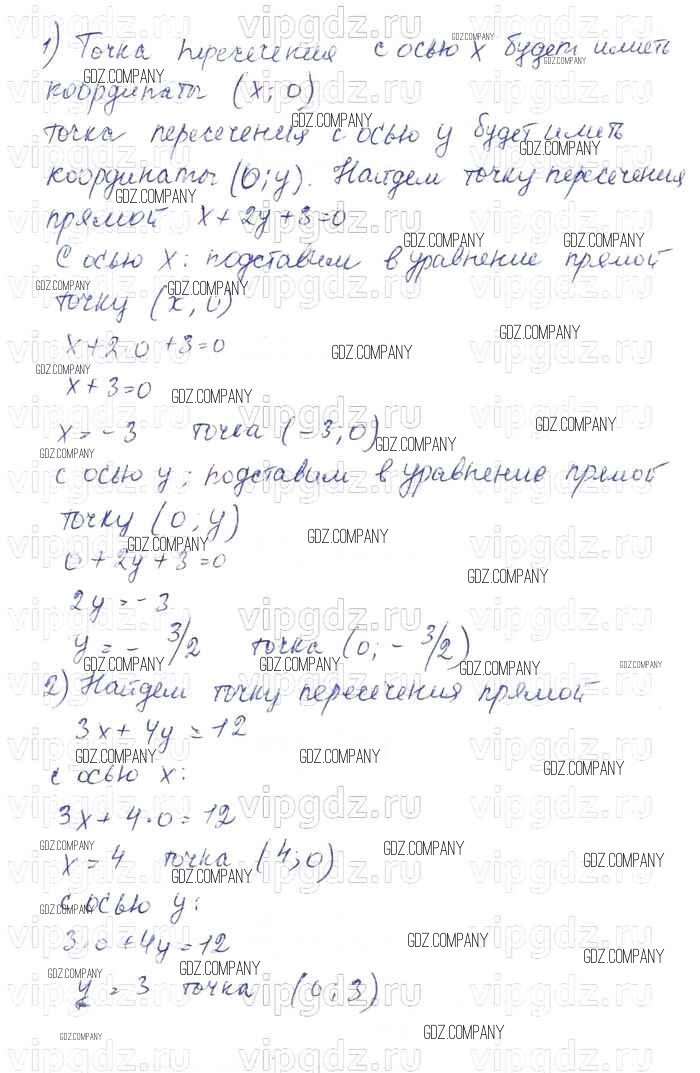 1) Точка пересечения с осью x будет иметь
координаты (x; 0)
точка пересечения с осью y будет иметь
координаты (0; y). Найдем точку пересечения
прямой x + 2y + 3 = 0
С осью x: подставим в уравнение прямой
точку (x, 0)
x + 2·0 + 3 = 0
x + 3 = 0
x = -3 точка (-3; 0)
с осью y; подставим в уравнение прямой
точку (0; y)
0 + 2y + 3 = 0
2y = -3
y = - 3/2 точка (0; - 3/2)
2) Найдем точку пересечения прямой
3x + 4y = 12
с осью x:
3x + 4·0 = 12
x = 4 точка (4; 0)
с осью y:
3·0 + 4y = 12
y = 3 точка (0; 3)
GDZ.COMPANY
vipgdz.ru